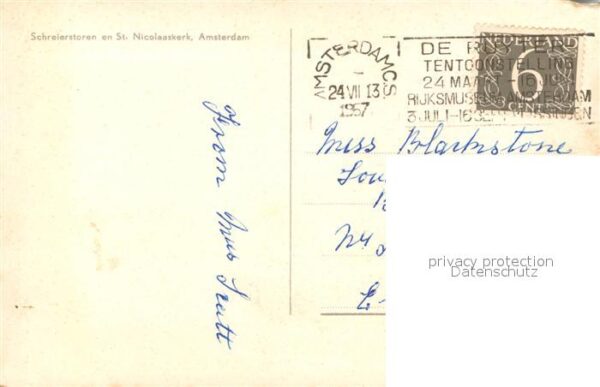 Schreierstoren en St. Nicolaaskerk, Amsterdam
AMSTERDAM CS
24 VII 13
1957
DE RUYTER
TENTOONSTELLING
24 MAART-16 JUNI
RIJKSMUSEUM AMSTERDAM
3 JULI-16 SEPT
NEDERLAND
6
CENT
Miss Blackstone
From Miss Scutt
privacy protection
Datenschutz